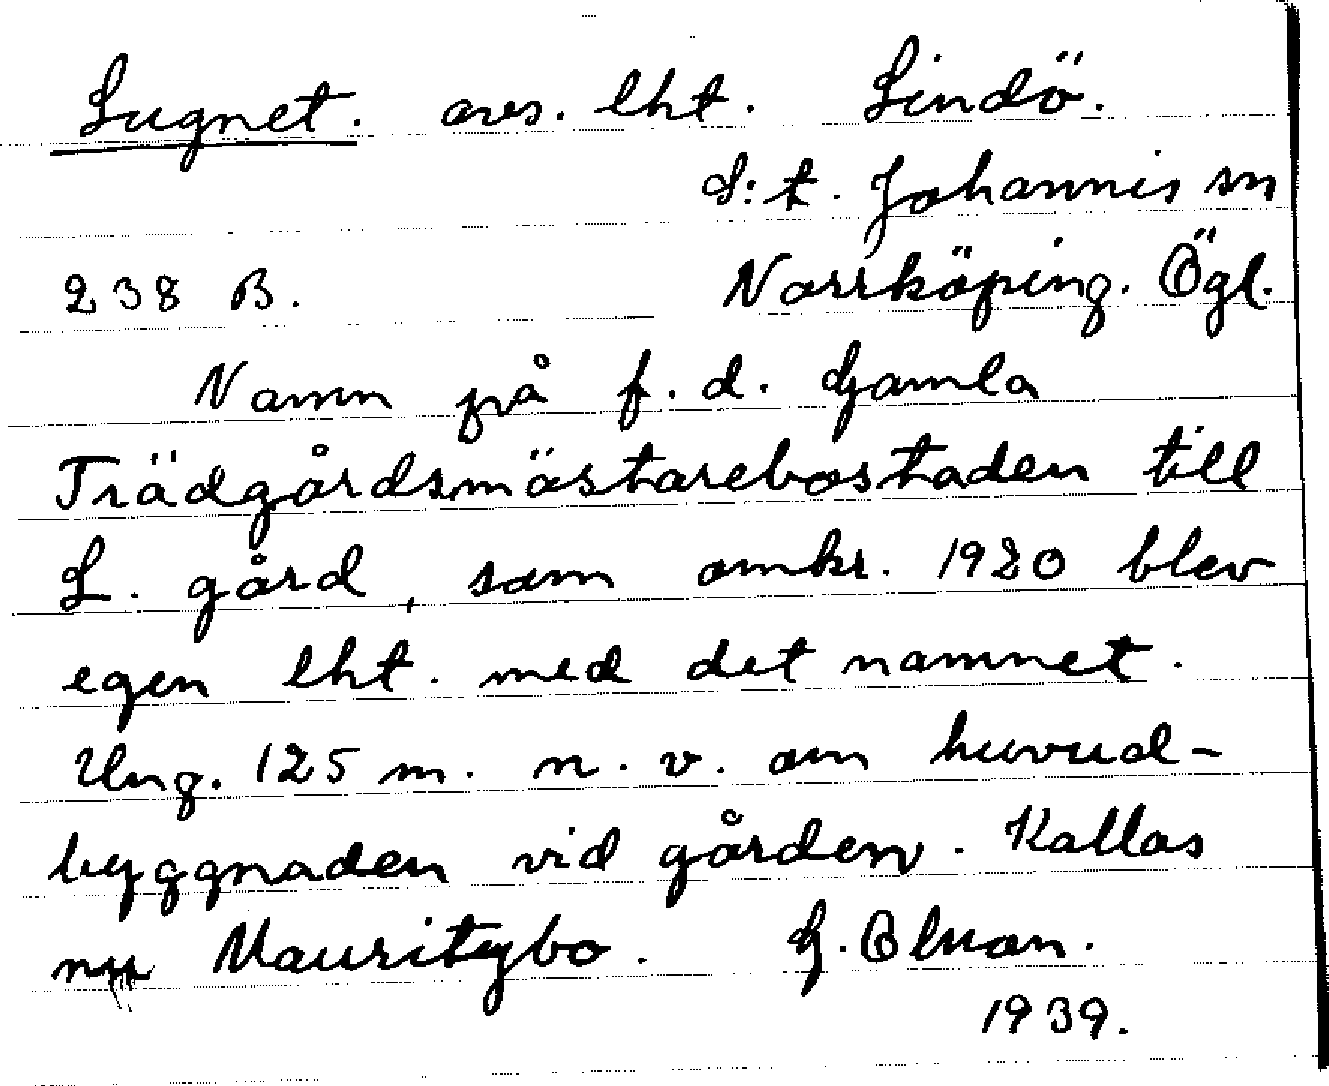 Lugnet. avs. lht. Lindö.
S:t. Johannis sn
238 B. Norrköping. Ögl.
Namn på f. d. Gamla
Trädgårdsmästarebostaden till
L. gård, som omkr. 1920 blev
egen lht. med det namnet.
Ung. 125 m. n. v. om huvud-
byggnaden vid gården. Kallas
nu Mauritzbo. G.
1939.